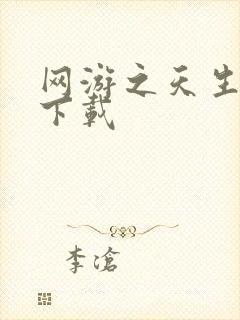 网游之天生
下载
李滄